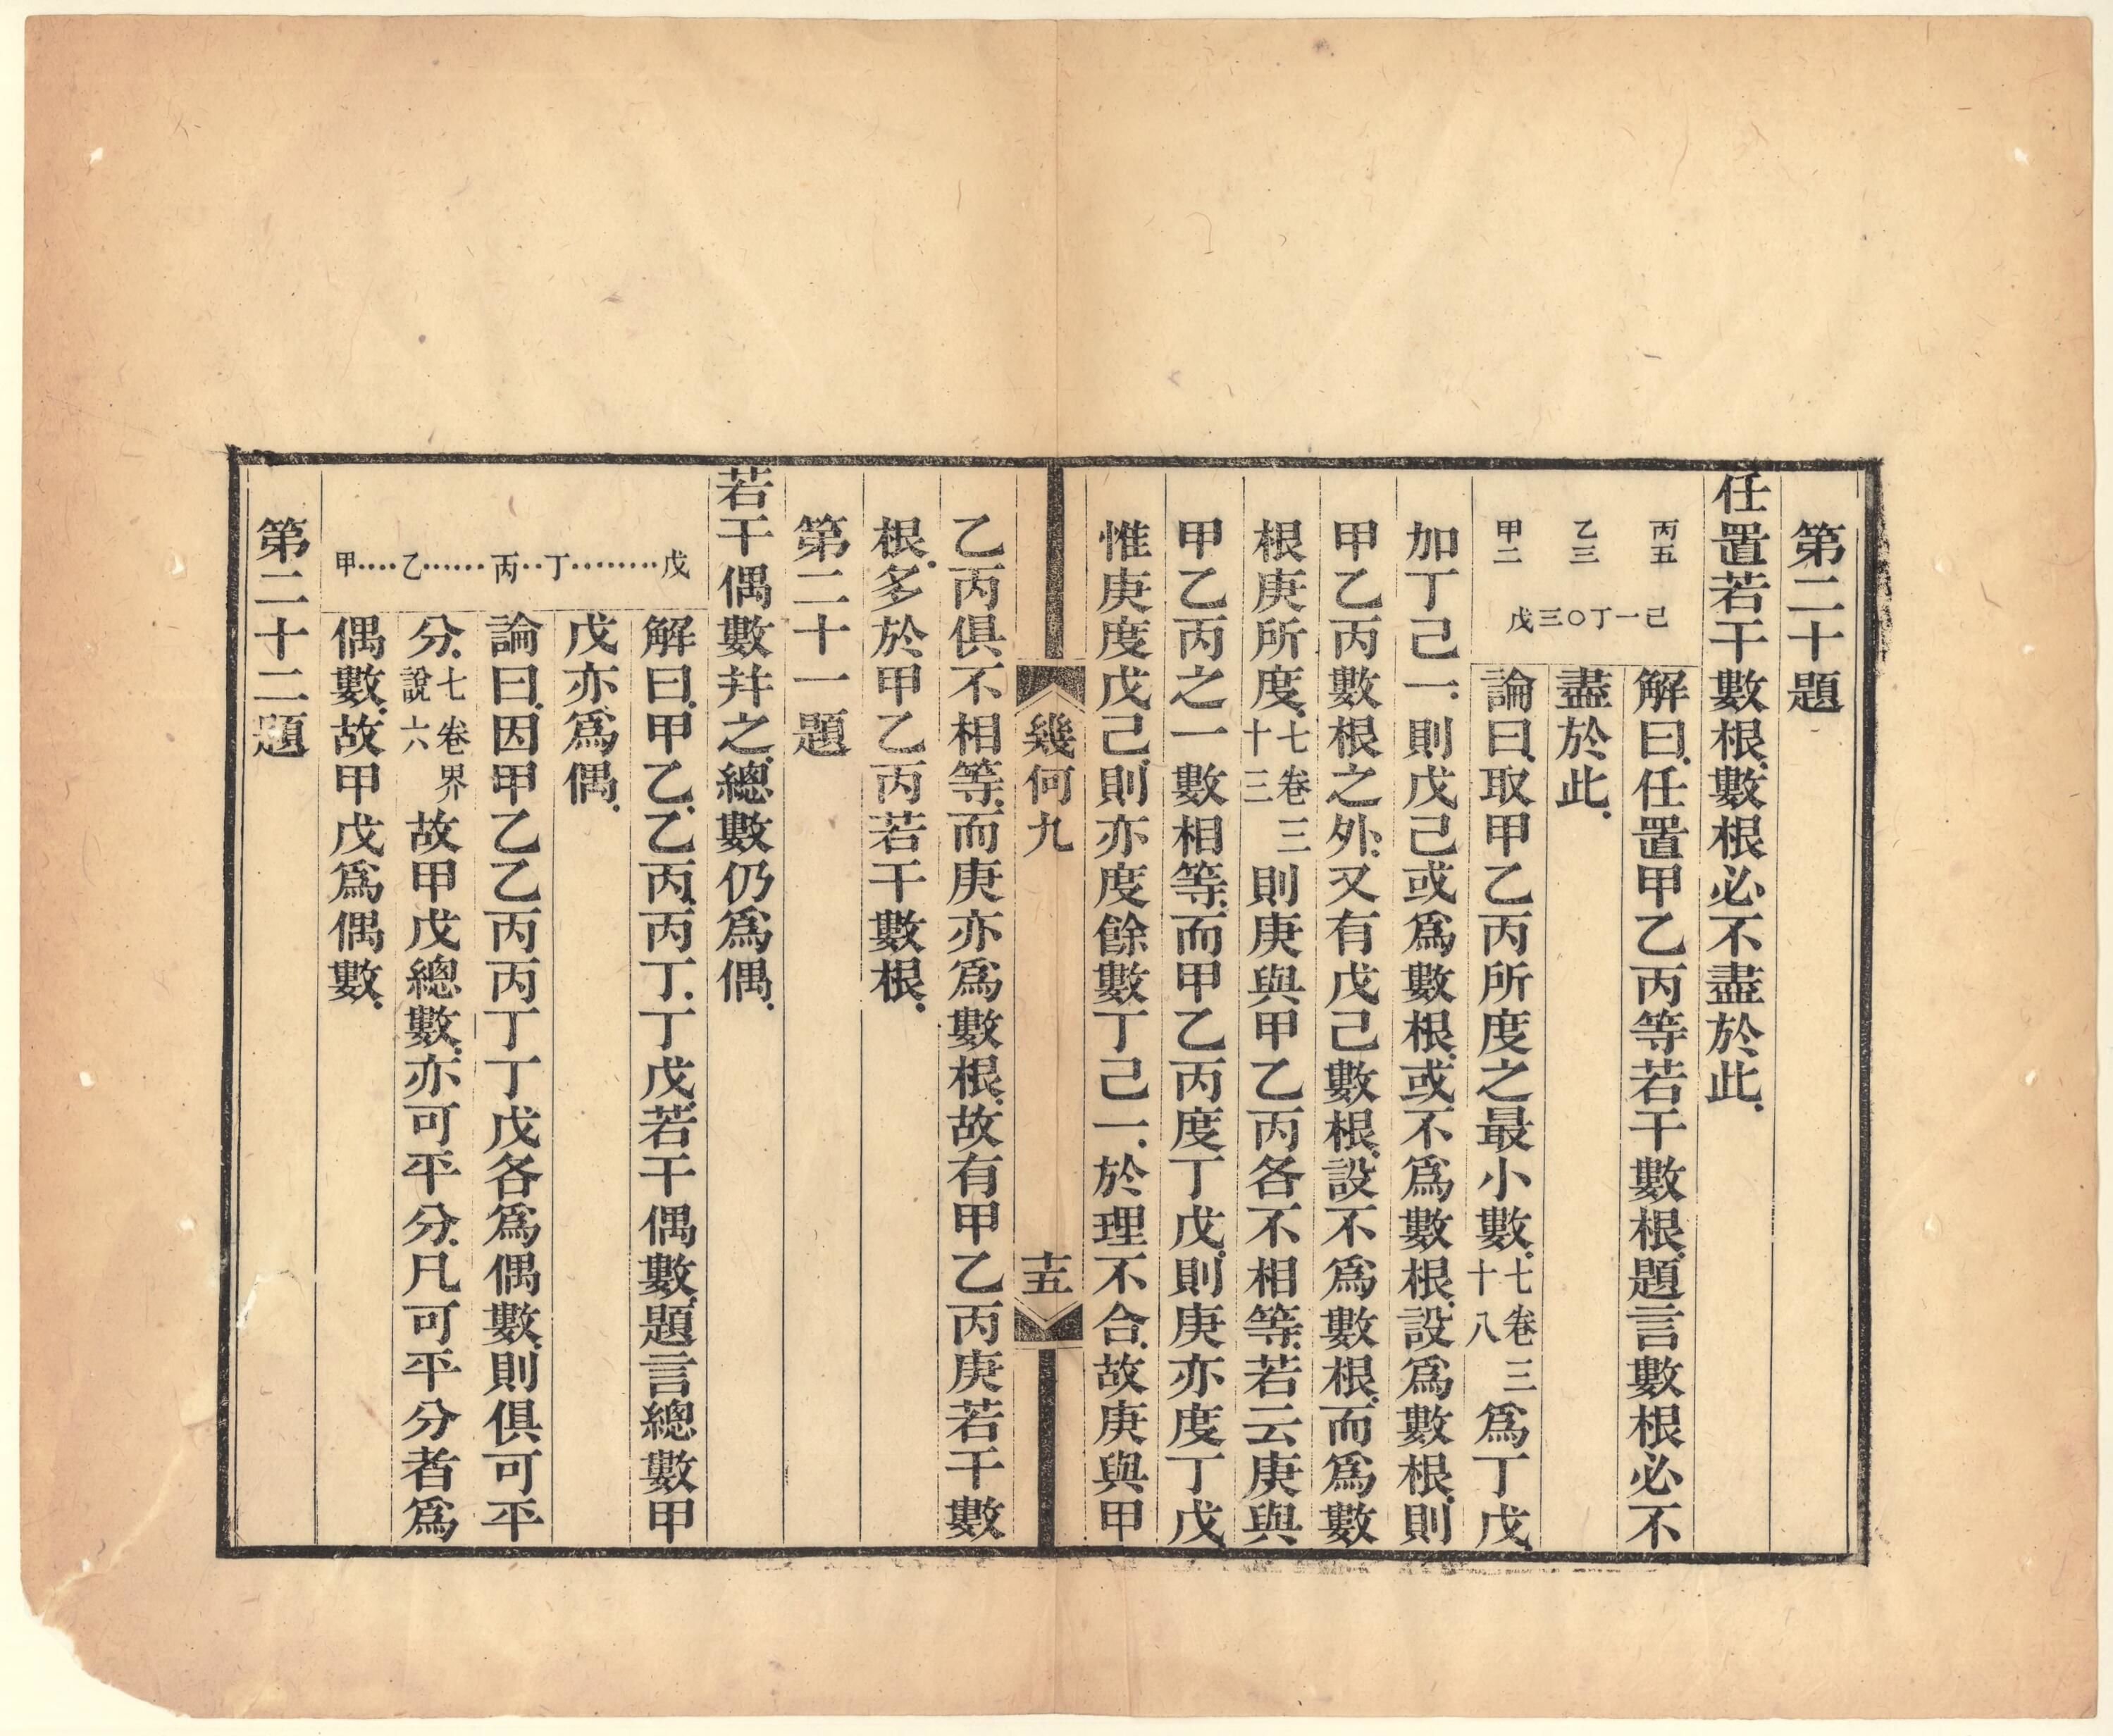 第二十題
任置若干數根數根必不盡於此
丙五
乙三
甲二
戊三〇丁一己
解曰任置甲乙丙等若干數根題言數根必不
盡於此
論曰取甲乙丙所度之最小數七卷三十八爲丁戊
加丁己一則戊己或爲數根或不爲數根設爲數根則
甲乙丙數根之外又有戊己數根設不爲數根而爲數
根庚所度七卷三十三則庚與甲乙丙各不相等若云庚與
甲乙丙之一數相等而甲乙丙度丁戊則庚亦度丁戊
惟庚度戊己則亦度餘數丁己一於理不合故庚與甲
幾何九
十五
乙丙俱不相等而庚亦爲數根故有甲乙丙庚若干數
根多於甲乙丙若干數根
第二十一題
若干偶數并之總數仍爲偶
甲····乙······丙··丁········戊
解曰甲乙乙丙丙丁丁戊若干偶數題言總數甲
戊亦爲偶
論曰因甲乙乙丙丙丁丁戊各爲偶數則俱可平
分七卷界說六故甲戊總數亦可平分凡可平分者爲
偶數故甲戊爲偶數
第二十二題